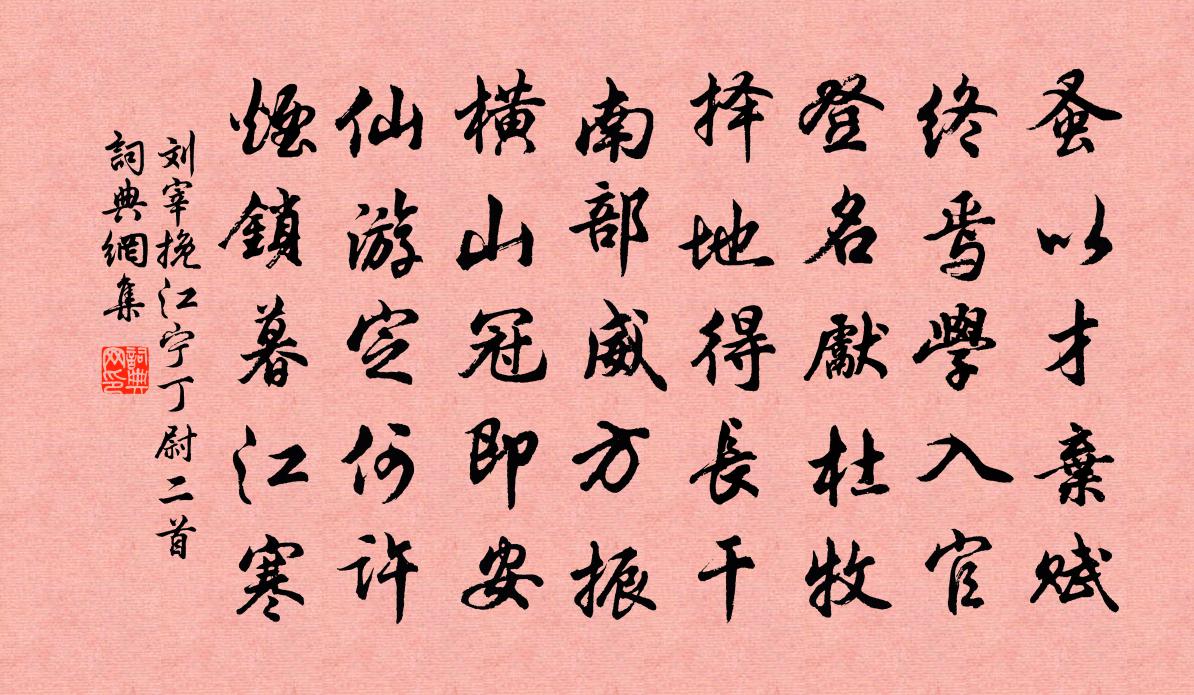 蚤以才棄赋
终焉學入官
登名獻杜牧
择地得長干
南部威方振
横山冠即安
仙游定何许
煙鎖暮江寒
刘宰挽江宁丁尉二首
詞典網集
詞典网印